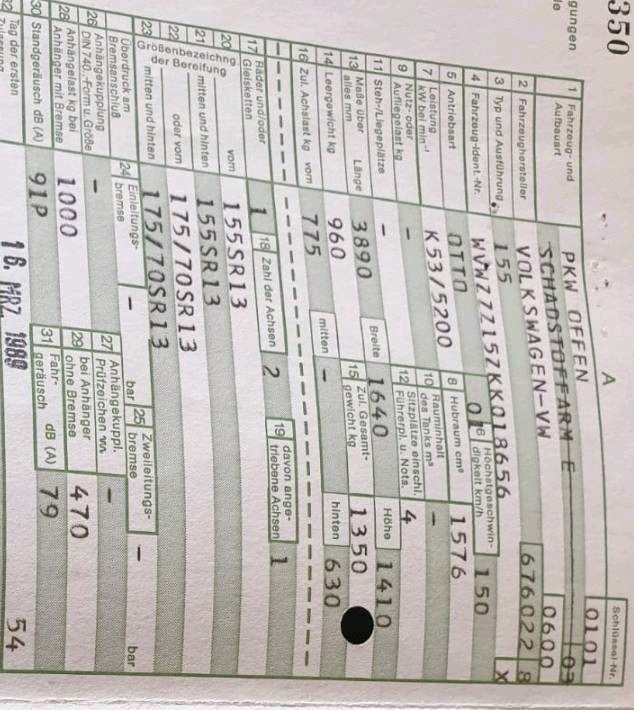 350
gungen
le
A
Schlüssel-Nr.
1 Fahrzeug- und Aufbauart PKW OFFEN 0101
SCHADSTOFFARM E 03
2 Fahrzeughersteller VOLKSWAGEN-VW 0600
3 Typ und Ausführung 155 676022 8
4 Fahrzeug-Ident.-Nr. WVWZZZ15ZKK018656 X
5 Antriebsart OTTO 01 6 Höchstgeschwindigkeit km/h 150
7 Leistung kW bei min⁻¹ K53/5200 8 Hubraum cm³ 1576
9 Nutz- oder Aufliegelast kg - 10 Rauminhalt des Tanks m³ -
11 Steh-/Liegeplätze - 12 Sitzplätze einschl. Führerpl. u. Nots. 4
13 Maße über alles mm Länge 3890 Breite 1640 Höhe 1410
14 Leergewicht kg 960 15 Zul. Gesamtgewicht kg 1350
16 Zul. Achslast kg vorn 775 mitten - hinten 630
17 Räder und/oder Gleisketten 1 18 Zahl der Achsen 2 19 davon angetriebene Achsen 1
Größenbezeichng. der Bereifung
20 vorn 155SR13
21 mitten und hinten 155SR13
22 oder vorn 175/70SR13
23 mitten und hinten 175/70SR13
Überdruck am Bremsanschluß 24 Einleitungsbremse - bar 25 Zweileitungsbremse - bar
26 Anhängekupplung DIN 740.-Form u. Größe - 27 Anhängekuppl. Prüfzeichen -
28 Anhängelast kg bei Anhänger mit Bremse 1000 29 bei Anhänger ohne Bremse 470
30 Standgeräusch dB (A) 91P 31 Fahrgeräusch dB (A) 79
32 Tag der ersten 16. MRZ. 1989 54